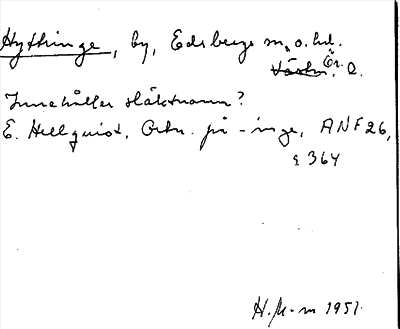 Hyttringe, by, Edsbergs sn. o. hd.
Västm. Ör. Ö.
Innehåller släktnamn?
E. Hellquist, Ortn. på -inge, ANF 26,
s 364
H. K-m 1951.